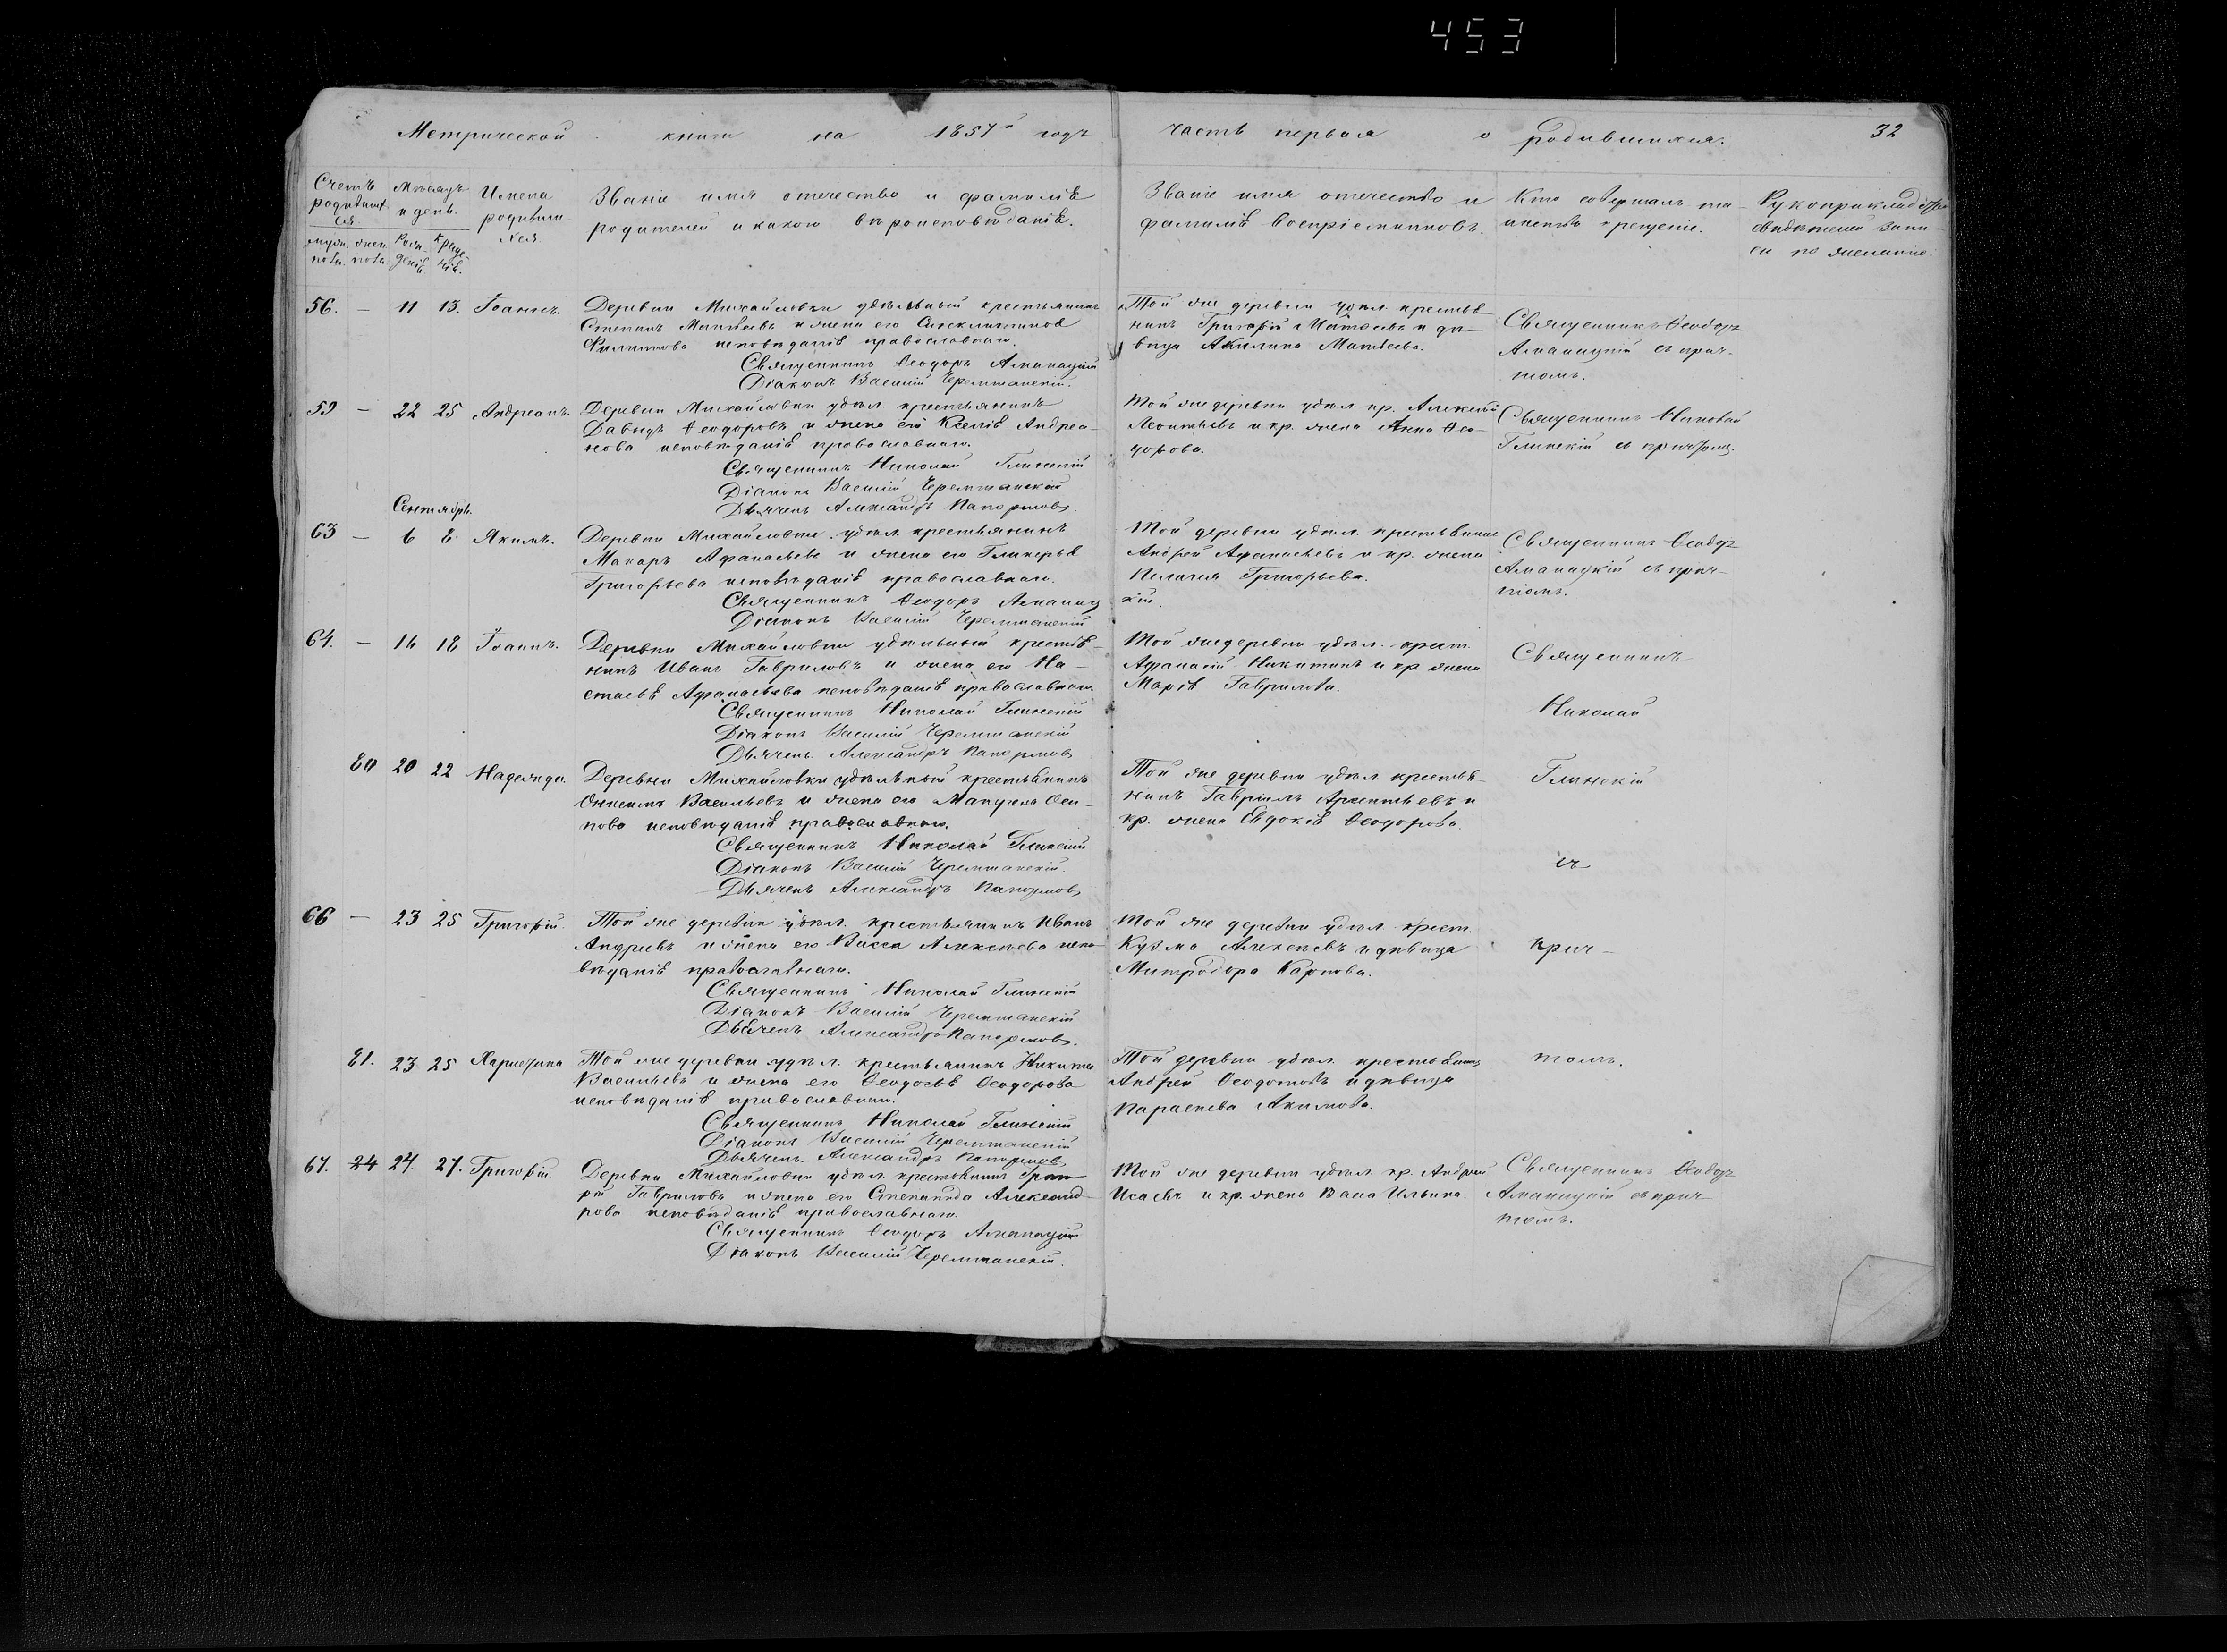 453
Метрической книги на 1857й годъ часть первая о родившихся. 32
Счетъ родившихся.
мужс. пола. женс. пола.
Мѣсяцъ и день.
Рожденія Крещенія.
Имена родившихся
Званіе имя отечество и фамилія
родителей и какого вѣроисповѣданія.
Званіе имя отечество и
фамилія воспріемниковъ.
Кто совершалъ таинство крещенія.
Рукоприкладство
свидѣтелей записи по желанію.
56. – 11 13. Іоаннъ.
Деревни Михайловки удѣльный крестьянинъ
Степанъ Матвѣевъ и жена его Синклитикія
Филиппова исповѣданія православнаго.
Священникъ Ѳеодоръ Алманацкій
Діаконъ Василій Черемшанскій.
Той же деревни удѣл. крестья
нинъ Григорій Матвѣевъ и дѣ-
вица Акилина Матвѣева.
Священникъ Ѳеодоръ
Алманацкій съ прич-
томъ.
59 – 22 25 Андреанъ.
Деревни Михайловки удѣл. крестьянинъ
Давыдъ Ѳеодоровъ и жена его Ксенія Андреа-
нова исповѣданія православнаго.
Священникъ Николай Глинскій
Діаконъ Василій Черемшанскій
Дьячекъ Александръ
Той же деревни удѣл. кр. Алексѣй
Леонтьевъ и кр. жена Анна Ѳео-
дорова.
Священникъ Николай
Глинскій съ причтомъ.
Сентябрь.
63 – 6 8 Якимъ.
Деревни Михайловки удѣл. крестьянинъ
Макаръ Афанасьевъ и жена его Гликерья
Григорьева исповѣданія православнаго.
Священникъ Ѳеодоръ Алманац
кій.
Діаконъ Василій Черемшанскій
Той деревни удѣл. крестьянинъ
Андрей Афанасьевъ и кр. жена
Пелагия Григорьева.
Священникъ Ѳеодоръ
Алманацкій съ прич-
томъ.
64. – 16 18 Іоаннъ.
Деревни Михайловки удѣльный крестья-
нинъ Иванъ Гавриловъ и жена его На-
стасья Афанасьева исповѣданія православнаго
Священникъ Николай Глинскій
Діаконъ Василій Черемшанскій
Дьячекъ Александръ
Той же деревни удѣл. крест.
Афанасій Никитинъ и кр жена
Марія Гаврилова.
Священникъ
Николай
80 20 22 Надежда.
Деревни Михайловки удѣльный крестьянинъ
Онисимъ Васильевъ и жена его Оси-
пова исповѣданія православнаго.
Священникъ Николай Глинскій
Діаконъ Василій Черемшанскій.
Дьячекъ Александръ
Той же деревни удѣл. крестья-
нинъ Гавріилъ Арсентьевъ и
кр. жена Евдокія Ѳеодорова.
Глинскій
съ
66 – 23 25 Григорій.
Той же деревни удѣл. крестьянинъ Иванъ
Андреевъ и жена его Васса Алексѣева испо-
вѣданія православнаго.
Священникъ Николай Глинскій
Діаконъ Василій Черемшанскій
Дьячекъ Александръ
Той же деревни удѣл. крест.
Кузма Алексѣевъ и дѣвица
Митродора Карпова.
прич-
81. 23 25 Харитина
Той же деревни удѣл. крестьянинъ Никита
Васильевъ и жена его Ѳеодосья Ѳеодорова
исповѣданія православнаго.
Священникъ Николай Глинскій
Діаконъ Василій Черемшанскій
Дьячекъ. Александръ
Той деревни удѣл. крестьянинъ
Андрей Ѳеодотовъ и дѣвица
Параскева Акимова.
томъ.
67. 24 24. 27. Григорій.
Деревни Михайловки удѣл. крестьянинъ Григо
рій Гавриловъ и жена его Степанида Александ-
рова исповѣданія православнаго.
Священникъ Ѳеодоръ Алманацкій
Діаконъ Василій Черемшанскій.
Той же деревни удѣл. кр. Андрей
Исаевъ и кр. жена Васса Ильина.
Священникъ Ѳеодоръ
Алманацкій съ прич
томъ.